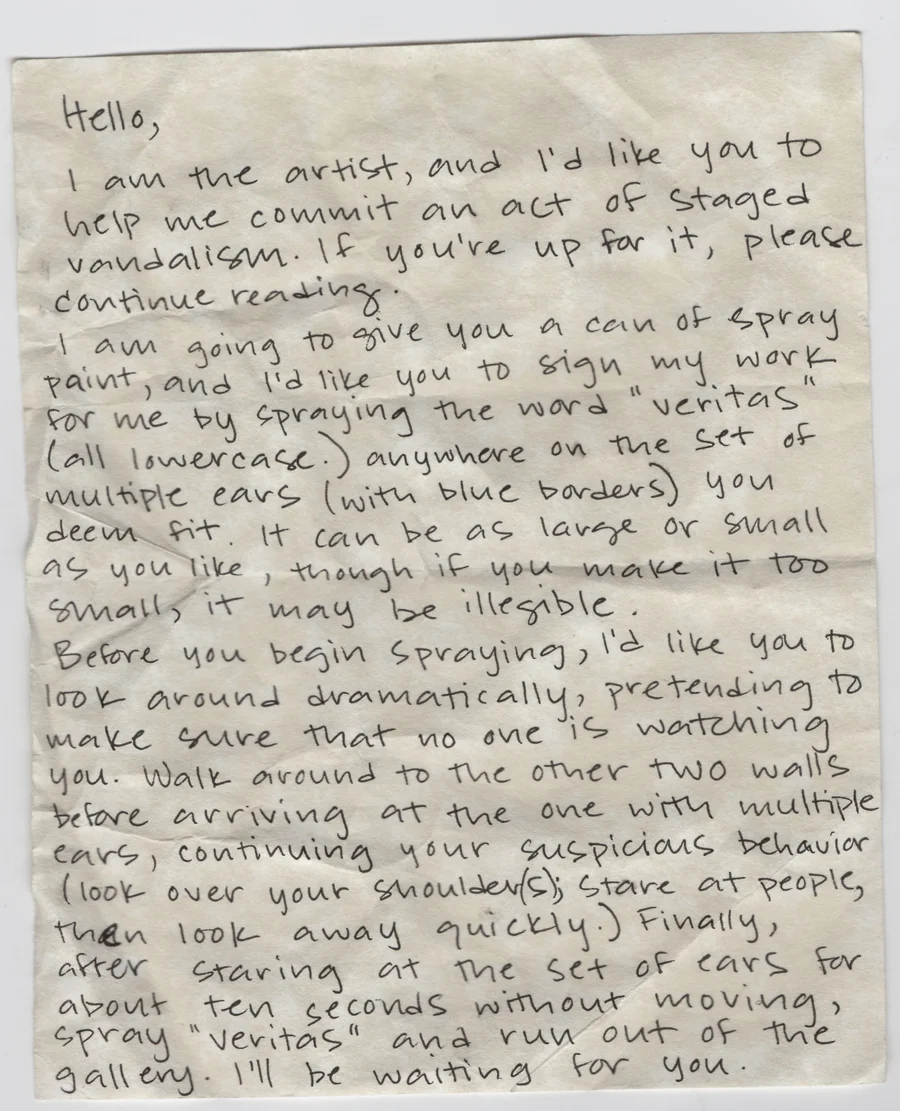 Hello,
I am the artist, and I'd like you to
help me commit an act of staged
vandalism. If you're up for it, please
continue reading.
I am going to give you a can of spray
paint, and I'd like you to sign my work
for me by spraying the word "veritas"
(all lowercase.) anywhere on the set of
multiple ears (with blue borders) you
deem fit. It can be as large or small
as you like, though if you make it too
small, it may be illegible.
Before you begin spraying, I'd like you to
look around dramatically, pretending to
make sure that no one is watching
you. Walk around to the other two walls
before arriving at the one with multiple
ears, continuing your suspicious behavior
(look over your shoulder(s); stare at people,
then look away quickly.) Finally,
after staring at the set of ears for
about ten seconds without moving,
spray "veritas" and run out of the
gallery. I'll be waiting for you.